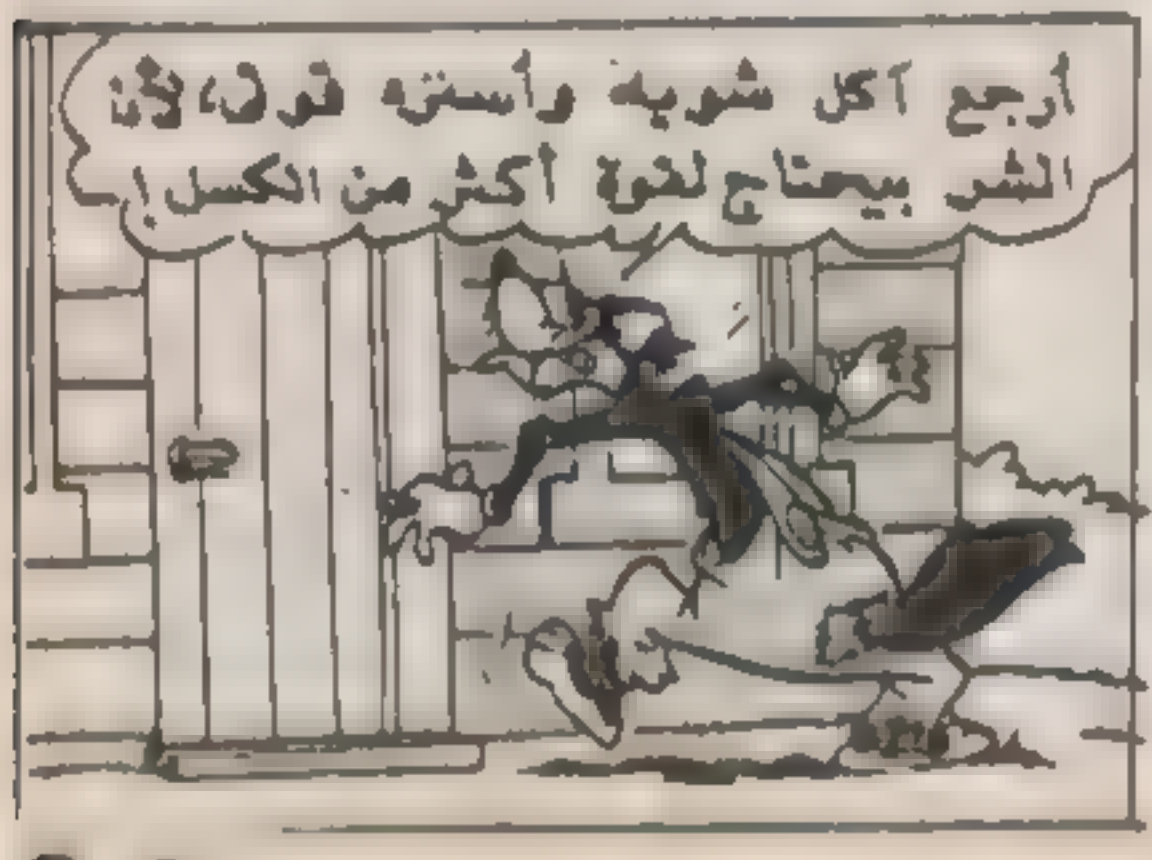 أرجع آكل شوربه وأسترد قوتى، لأن
الشر بيحتاج لقوة أكثر من الكسل!